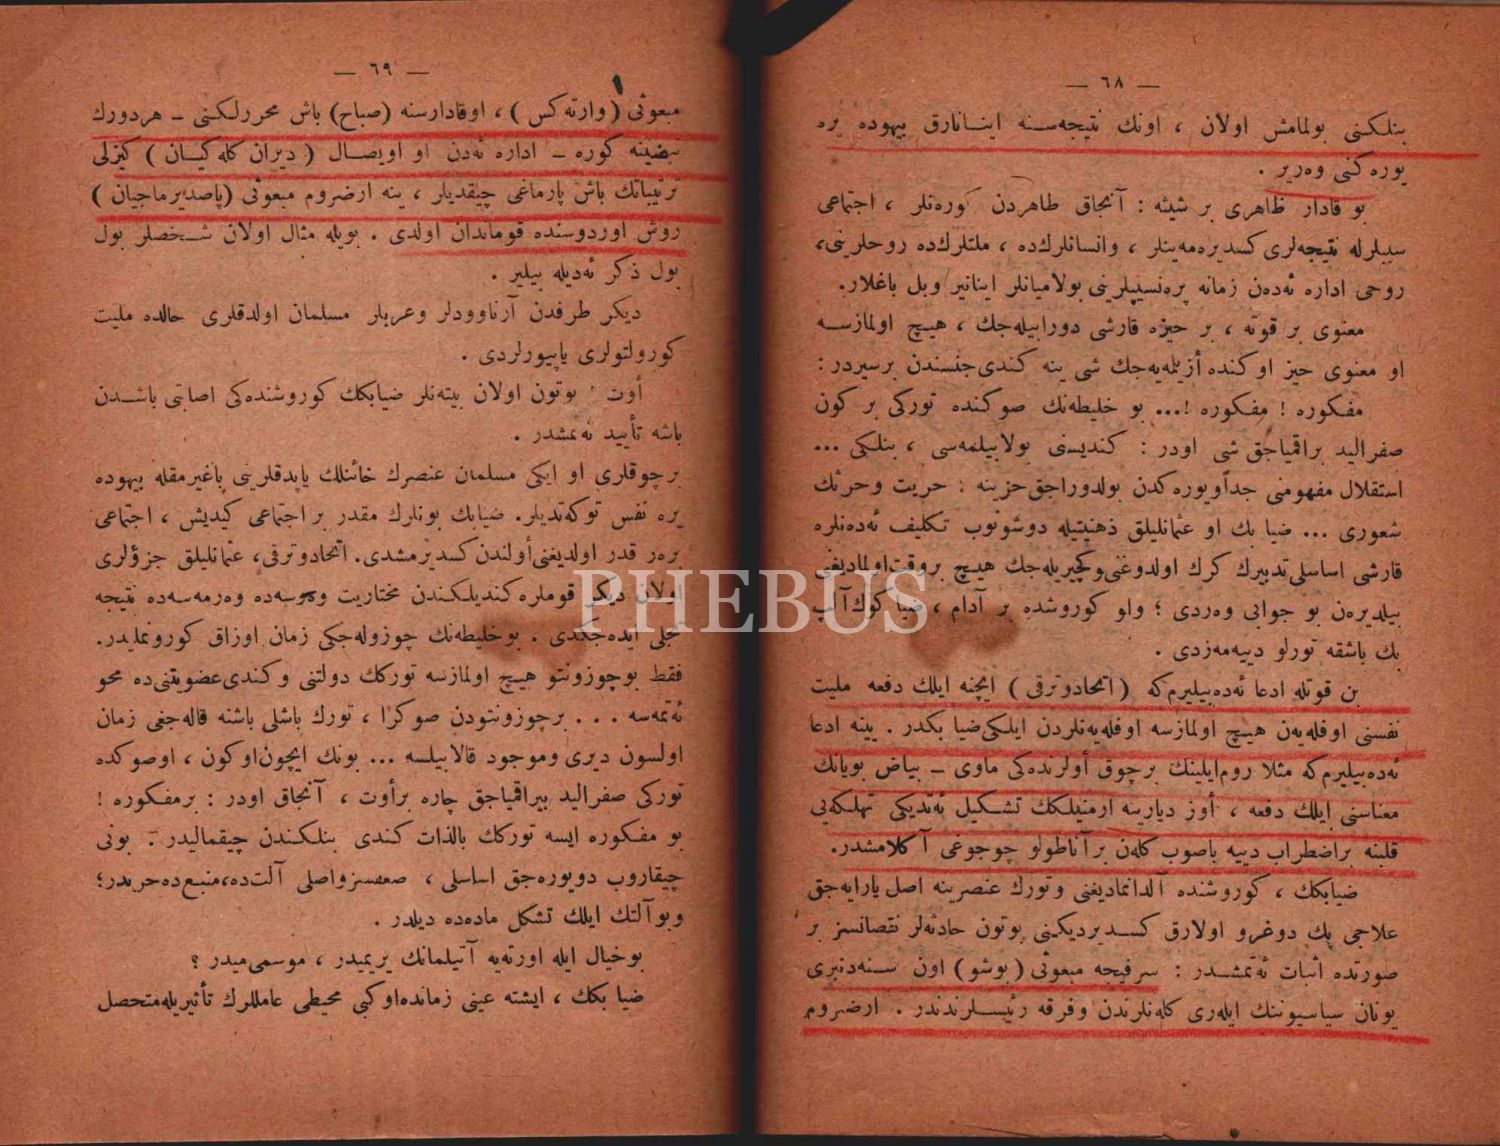 — ٦٨ —
بنلكنى بولمامش اولان ، اونك نتيجه‌سنه اينانارق بيهوده يره
يوره‌كنى وه‌رير .
بو قادار ظاهرى بر شيئه : آنجاق ظاهردن كوره‌نلر ، اجتماعى
سببلرله نتيجه‌لرى كسديره‌مه‌ينلر ، وانسانلرك‌ده ، ملتلرك‌ده روحلرينى،
روحى اداره ئه‌ده‌ن زمانه پره‌نسيپلرينى بولاميانلر اينانير وبل باغلار.
معنوى بر قوته ، بر حيزه قارشى دورابيله‌جك ، هيچ اولمازسه
او معنوى حيز اوكنده أزيلميه‌جك شى ينه كندى جنسندن برسيردر :
مفكوره ! مفكوره !... بو خليطه‌نك صوكنده توركى بر كون
صفراليد براقمياجق شى اودر : كنديسنى بولابيلمه‌سى ، بنلكى ...
استقلال مفهومنى جداً يوره‌كدن بولدوراجق حزينه : حريت وحرثك
شعورى ... ضيا بك او عثمانليلق ذهنيتيله دوشونوب تكليف ئه‌ده‌نلره
قارشى اساسلى تدبيرك كرك اولدوغنى وكچيريله‌جك هيچ بروقت اولماديغنى
بيلديره‌ن بو جوابى وه‌ردى ؛ ولو كوروشده بر آدام ، ضيا كوك آلپ
بك باشقه تورلو دييه‌مه‌زدى .
بن قوتله ادعا ئه‌ده‌بيليرم‌كه ( اتحادوترقى ) ايچنه ايلك دفعه مليت
نفسنى اوفله‌يه‌ن هيچ اولمازسه اوفله‌يه‌نلردن ايلكى ضيا بكدر . يينه ادعا
ئه‌ده‌بيليرم‌كه مثلا روم‌ايلينك برچوق أولرنده‌كى ماوى – بياض بويانك
معناسنى ايلك دفعه ، أوز ديارينه ارمنيلكك تشكيل ئه‌تديكى تهلكه‌يى
قلبنه براضطراب دييه باصوب كله‌ن برآناطولو چوجوغى آكلامشدر.
ضيابكك ، كوروشنده آلدانماديغنى وتورك عنصرينه اصل يارايه‌جق
علاجى پك دوغرو اولارق كسديرديكنى بوتون حادثه‌لر نقصانسز بر
صورتده اثبات ئه‌تمشدر : سرفيجه مبعوثى ( بوشو ) اون سنه‌دنبرى
يونان سياسيوننك ايله‌رى كله‌نلرندن وفرقه رئيسلرندندر . ارضروم
— ٦٩ —
مبعوثى ( وارته‌كس ) ، اوقادارسنه (صباح) باش محررلكنى – هردورك
نبضينه كوره – اداره ئه‌دن او اويصال ( ديران كله‌كيان ) كيزلى
ترتيباتك باش پارماغى چيقديلر ، ينه ارضروم مبعوثى (پاصديرماجيان )
روش اوردوسنده قوماندان اولدى . بويله مثال اولان شخصلر بول
بول ذكر ئه‌ديله بيلير .
ديكر طرفدن آرناوودلر وعربلر مسلمان اولدقلرى حالده مليت
كورولتولرى ياپيورلردى .
أوت ! بوتون اولان بيته‌نلر ضيابكك كوروشنده‌كى اصابتى باشدن
باشه تأييد ئه‌تمشدر .
برچوقلرى او ايكى مسلمان عنصرك خائنلك ياپدقلرينى باغيرمقله بيهوده
يره نفس توكه‌تديلر. ضيابك بونلرك مقدر بر اجتماعى كيديش ، اجتماعى
بره‌ر قدر اولديغنى أولندن كسديرمشدى. اتحادوترقى، عثمانليلق جزؤلرى
اولان ديكر قوملره كنديلكندن مختاريت ويرسه‌ده وه‌رمه‌سه‌ده نتيجه
تجلى ايده‌جكدى . بوخليطه‌نك چوزوله‌جكى زمان اوزاق كورونمليدر.
فقط بوچوزونتو هيچ اولمازسه توركك دولتنى وكندى عضويتنى‌ده محو
ئه‌تمه‌سه . . . برچوزونتودن صوكرا ، تورك باشلى باشنه قاله‌جغى زمان
اولسون ديرى وموجود قالابيلسه ... بونك ايچون اوكون ، اوصوكده
توركى صفراليد بيراقمياجق چاره برأوت ، آنجاق اودر : برمفكوره !
بو مفكوره ايسه توركك بالذات كندى بنلكندن چيقماليدر . بونى
چيقاروب دويوره‌جق اساسلى ، صعفسزواصلى آلت‌ده، منبع‌ده حرثدر؛
وبوآلتك ايلك تشكل ماده‌ده ديلدر .
بوخيال ايله اورته‌يه آتيلمانك يريميدر ، موسمى‌ميدر ؟
ضيا بكك ، ايشته عينى زمانده‌اوكبى محيطى عامللرك تأثيريله متحصل
PHEBUS